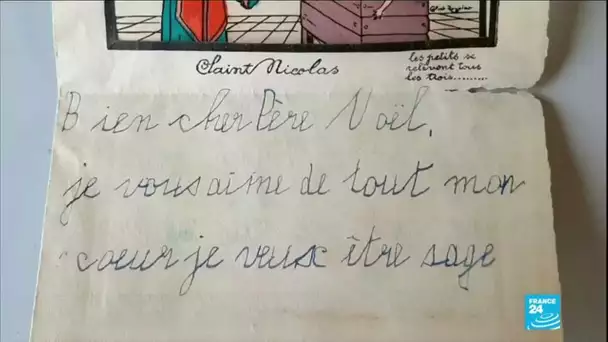 Claint Nicolas
les petits se
relèvent tous
les trois.........
Bien cher Père Noël,
je vous aime de tout mon
coeur je veux être sage
FRANCE
24